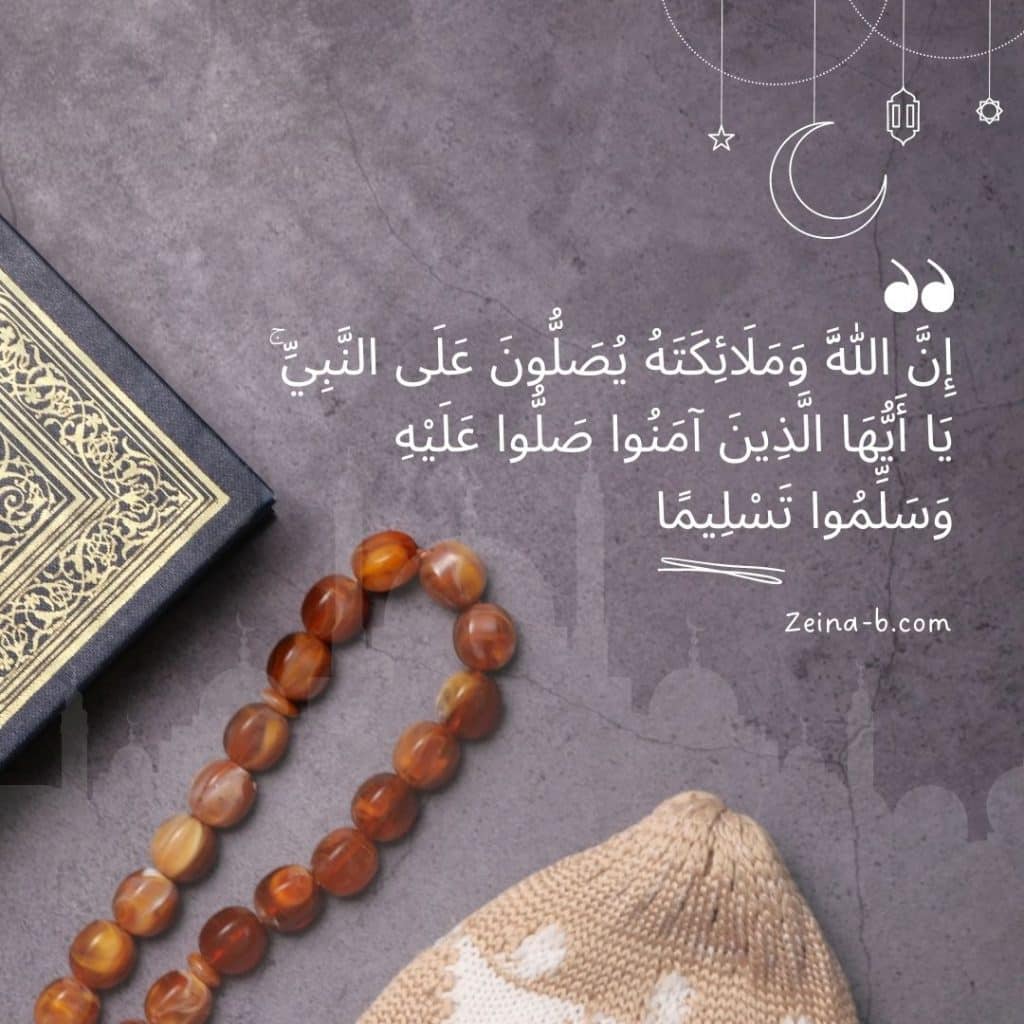 إِنَّ اللَّهَ وَمَلَائِكَتَهُ يُصَلُّونَ عَلَى النَّبِيِّ ۚ
يَا أَيُّهَا الَّذِينَ آمَنُوا صَلُّوا عَلَيْهِ
وَسَلِّمُوا تَسْلِيمًا
Zeina-b.com